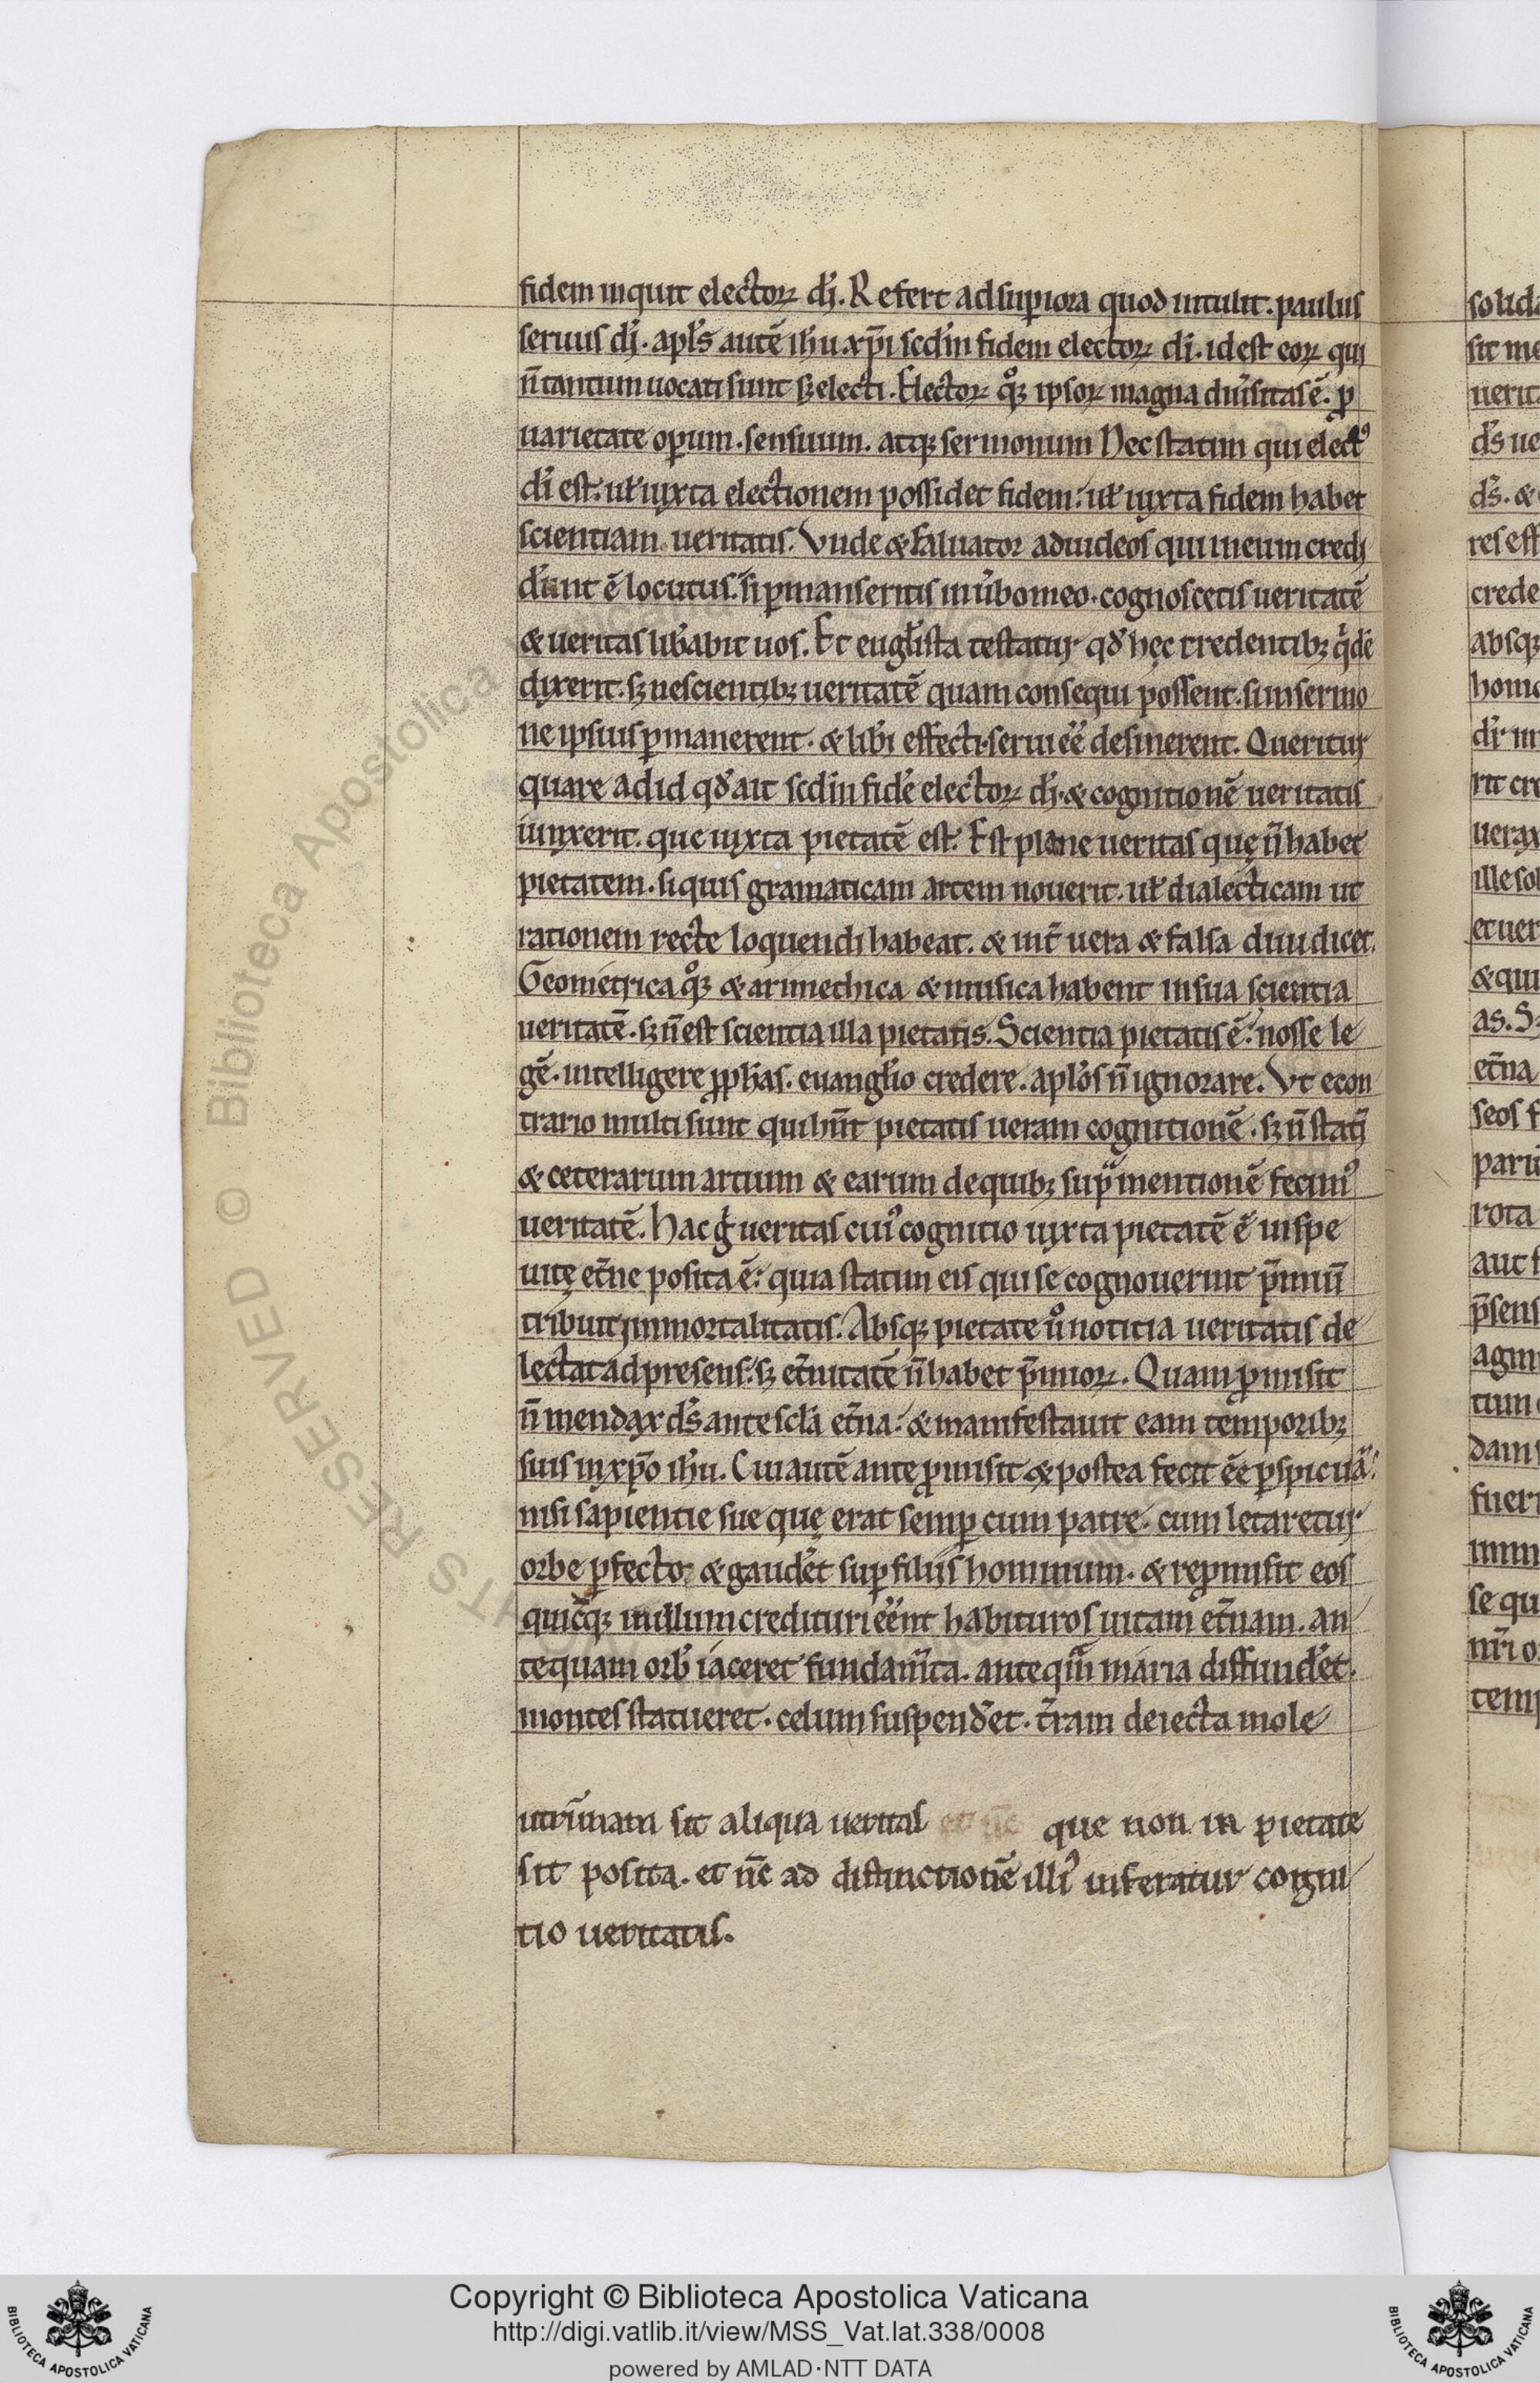 fidem inquit electoꝝ dī. Refert ad supiora quod intulit. paulus
seruus dī. apls̄ autē ihu xp̄i scdm̄ fidem electoꝝ dī. id est eoꝝ qui
n̄ tantum uocati sunt sꝫ electi. Electoꝝ qͦꝫ ipsoꝝ magna diu͛sitas ē. ꝓ
uarietate oꝑum. sensuum. atqꝫ sermonum Nec statim qui electꝰ
dī est. uł iuxta electionem possidet fidem: uł iuxta fidem habet
scientiam ueritatis. Vnde & saluator ad iudeos qui in eum credi
d͛unt ē locutus. si ꝑmanseritis in u͛bo meo. cognoscetis ueritatē
& ueritas lib͛abit uos. Et eugl̄ista testatur qd̄ hęc credentibꝫ qͥdē
dixerit. sꝫ nescientibꝫ ueritatē quam consequi possent. si in sermo
ne ipsius ꝑmanerent. & lib͛i effecti serui eē̄ desinerent. Queritur
quare ad id qd̄ ait scdm̄ fidē electoꝝ dī. & cognitionē ueritatis
iunxerit. que iuxta pietatē est. Est plane ueritas quę n̄ habet
pietatem. si quis gramaticam artem nouerit. uł dialecticam ut
rationem recte loquendi habeat. & int͛ uera & falsa diiudicet.
Geometrica qͦꝫ & arimethica & musica habent in sua scientia
ueritatē. sꝫ n̄ est scientia illa pietatis. Scientia pietatis ē. nosse le
gē. intelligere ꝓph̄as. euangl̄io credere. apl̄os n̄ ignorare. Vt econ
trario multi sunt qui hn̄t pietatis ueram cognitionē. sꝫ n̄ stati̅
& ceterarum artium & earum de quibꝫ supᷓ mentionē fecimꝰ
ueritatē. Hac gͦ ueritas cuiꝰ cognitio iuxta pietatē ē in spe
uitę et͛ne posita ē: quia statim eis qui se cognouerint p̄miū
tribuit immortalitatis. Absqꝫ pietate uͦ noticia ueritatis de
lectat ad presens. sꝫ et͛nitatē n̄ habet p̄mioꝝ. Quam ꝓmisit
n̄ mendax ds̄ ante scl̄a et͛na. & manifestauit eam temporibꝫ
suis in xp̄o ihu. Cui autē ante ꝓmisit & postea fecit eē̄ ꝑspicuā:
nisi sapientie sue quę erat semꝑ cum patre. cum letaretur
orbe ꝑfecto & gaud͛et suꝑ filiis hominum. & reꝓmisit eos
quicūqꝫ in illum credituri eēnt habituros uitam et͛nam. an
tequam orb͛ iaceret fundam̄ta. anteqᷓm maria diffund͛et.
montes statueret. celum suspend͛et. t͛ram deiecta mole

utrūnam sit aliqua ueritas que non in pietate
sit posita. et nc̄ ad distinctionē illiꝰ inferatur cogni
tio ueritatis.
Copyright © Biblioteca Apostolica Vaticana
http://digi.vatlib.it/view/MSS_Vat.lat.338/0008
powered by AMLAD·NTT DATA